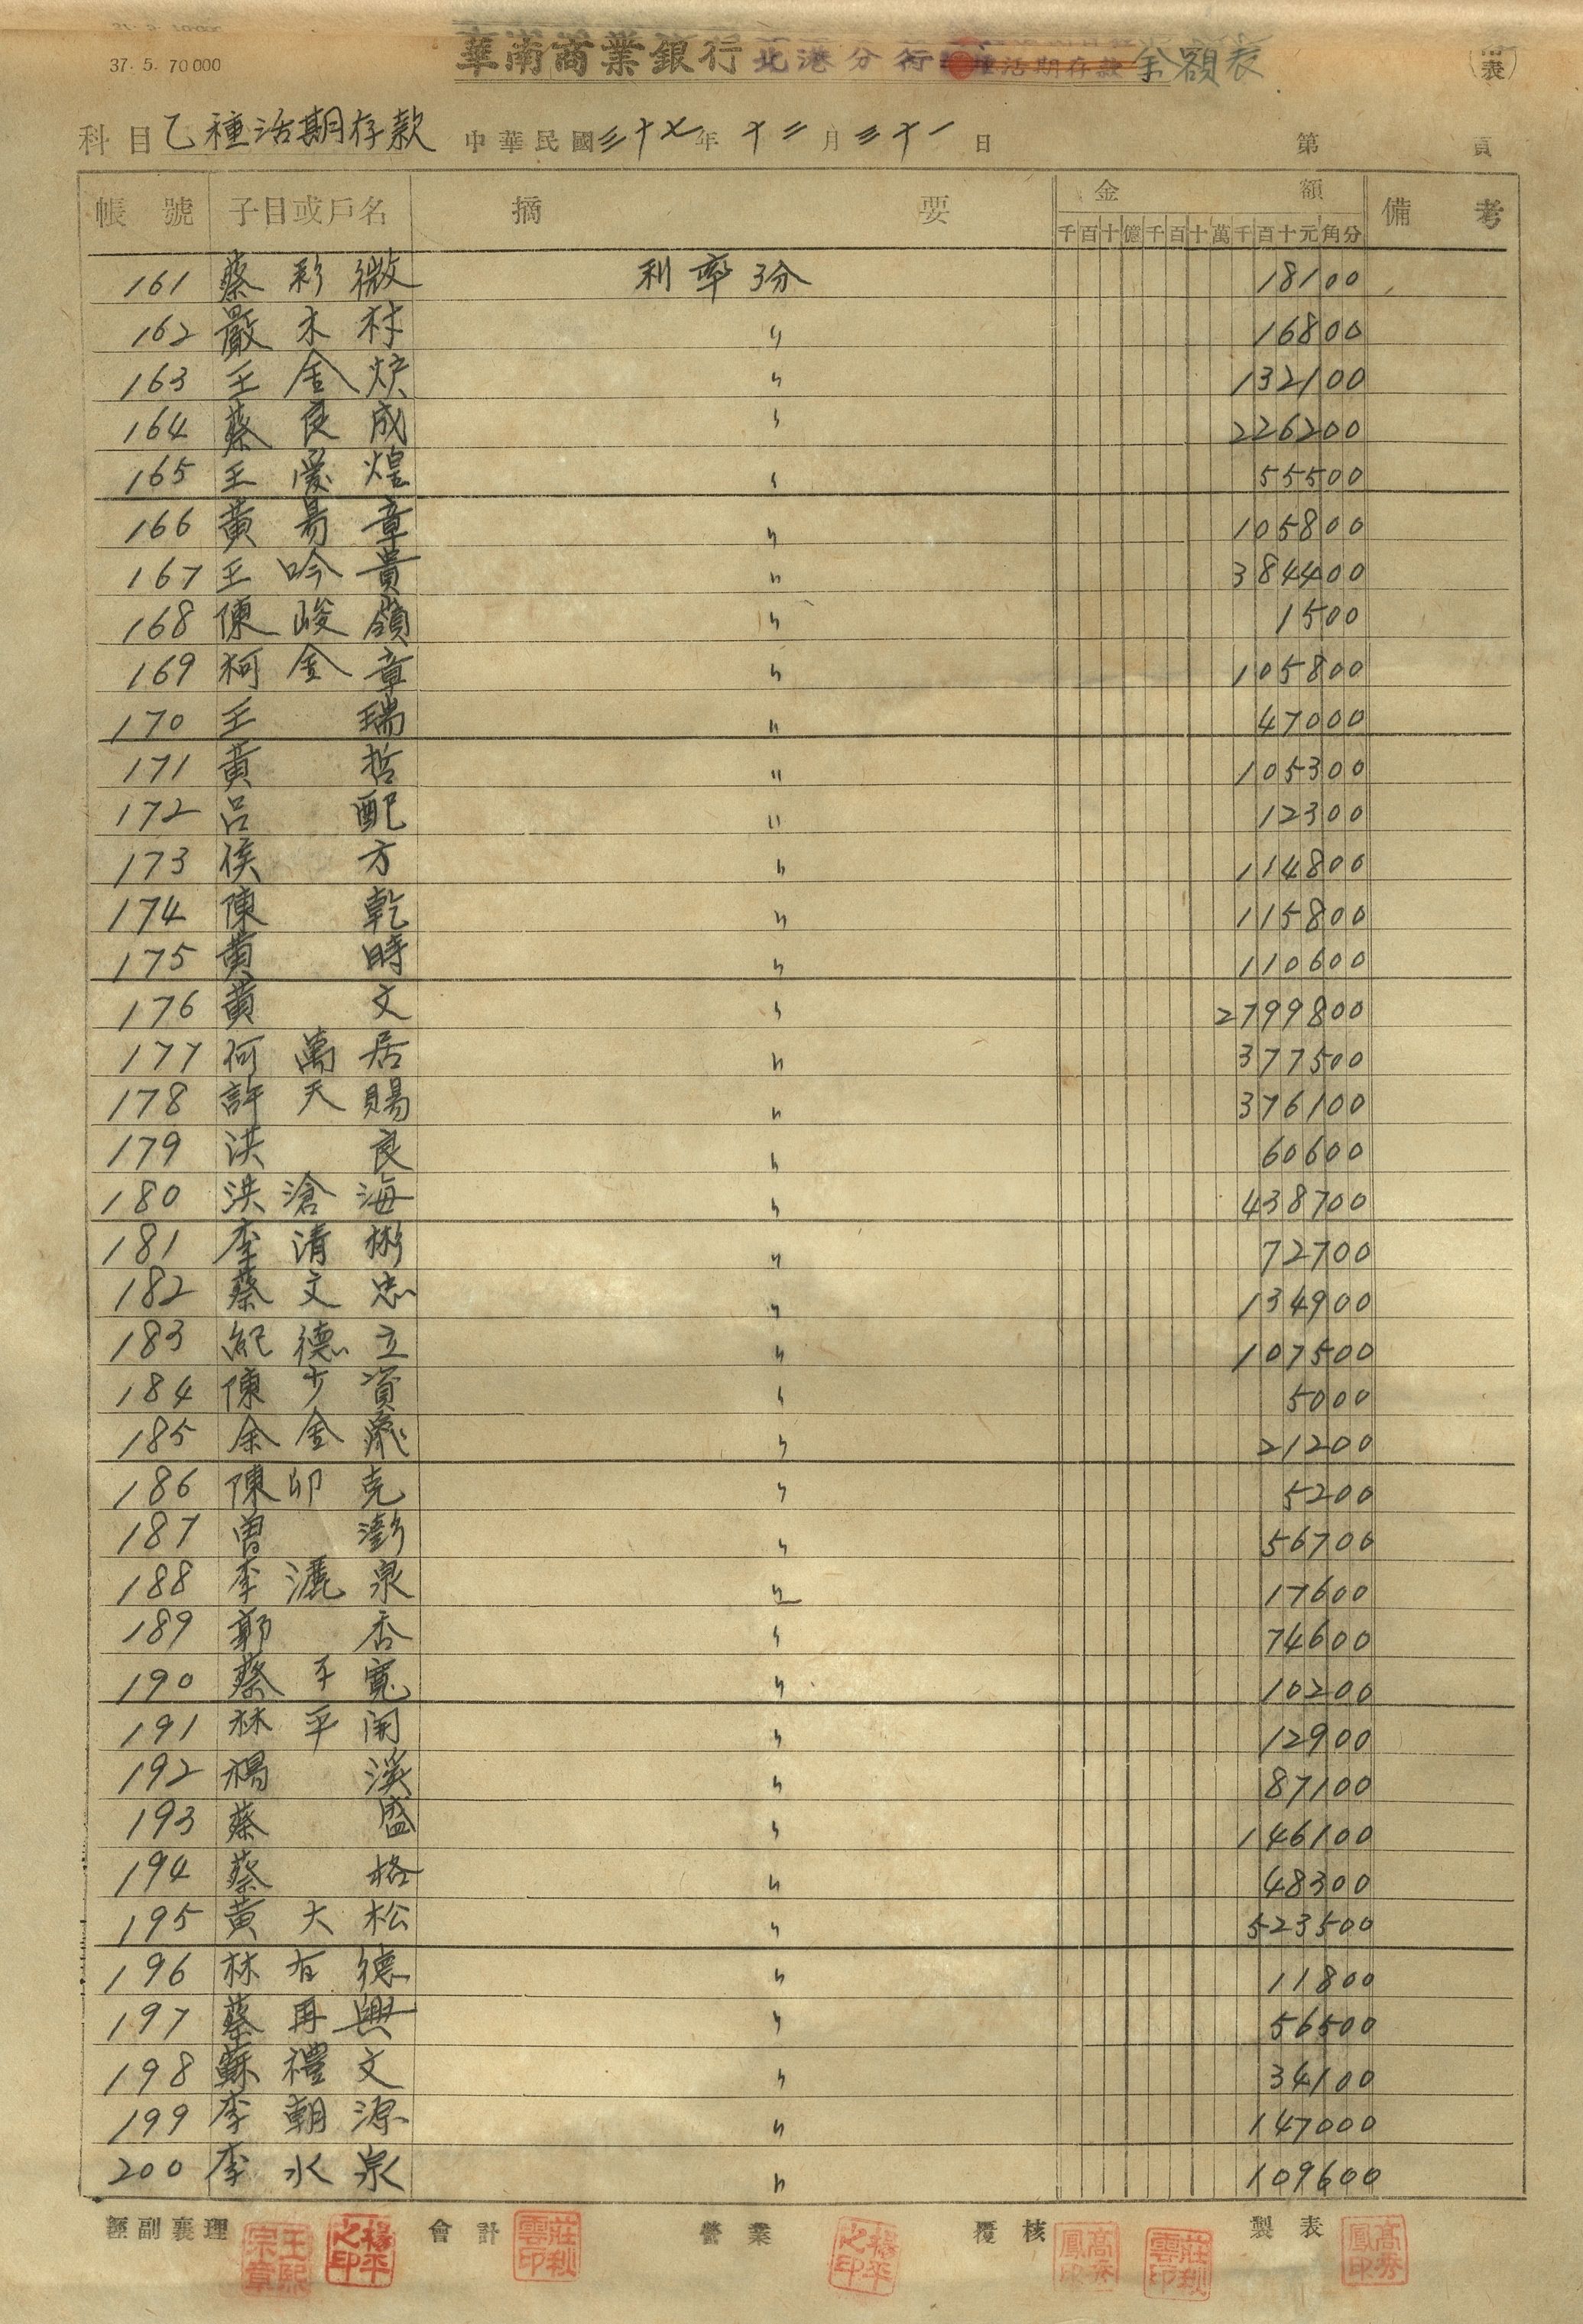 37. 5. 70000
華南商業銀行 北港分行 種活期存款 余額表
(表)
科目 乙種活期存款 中華民國三十七年十二月三十一日 第 頁
帳號 子目或戶名 摘要 金額 備考
千百十億千百十萬千百十元角分
161 蔡彩微 利率3分 18100
162 嚴木材 〃 16800
163 王金炉 〃 132100
164 蔡良成 〃 226200
165 王愛煌 〃 55500
166 黃易章 〃 105800
167 王吟貴 〃 384400
168 陳峻嶺 〃 1500
169 柯金章 〃 105800
170 王瑞 〃 47000
171 黃哲 〃 105300
172 呂配 〃 12300
173 侯方 〃 114800
174 陳乾 〃 115800
175 黃時 〃 110600
176 黃文 〃 2799800
177 何萬居 〃 377500
178 許天賜 〃 376100
179 洪良 〃 60600
180 洪滄海 〃 438700
181 李清彬 〃 72700
182 蔡文忠 〃 134900
183 紀德立 〃 107500
184 陳少資 〃 5000
185 余金 〃 21200
186 陳卯克 〃 5200
187 曾澎 〃 56700
188 李灑泉 〃 17600
189 郭香 〃 74600
190 蔡子寬 〃 10200
191 林平開 〃 12900
192 楊溪 〃 87100
193 蔡盛 〃 146100
194 蔡格 〃 48300
195 黃大松 〃 523500
196 林有德 〃 11800
197 蔡再興 〃 56500
198 蘇禮文 〃 34100
199 李朝源 〃 147000
200 李水泉 〃 109600
經副襄理 王熙宗章 楊平之印 會計 莊秋雲印 營業 楊平之印 覆核 高秀鳳印 莊秋雲印 製表 高秀鳳印